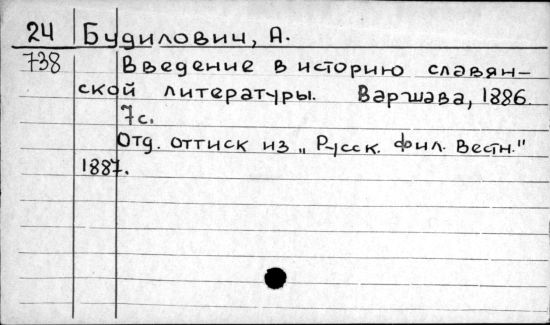 24 Будилович, А.
738 Введение в историю славян-
ской литературы. Варшава, 1886.
7 с.
Отд. оттиск из „Русск. Фил. Вестн."
1887.